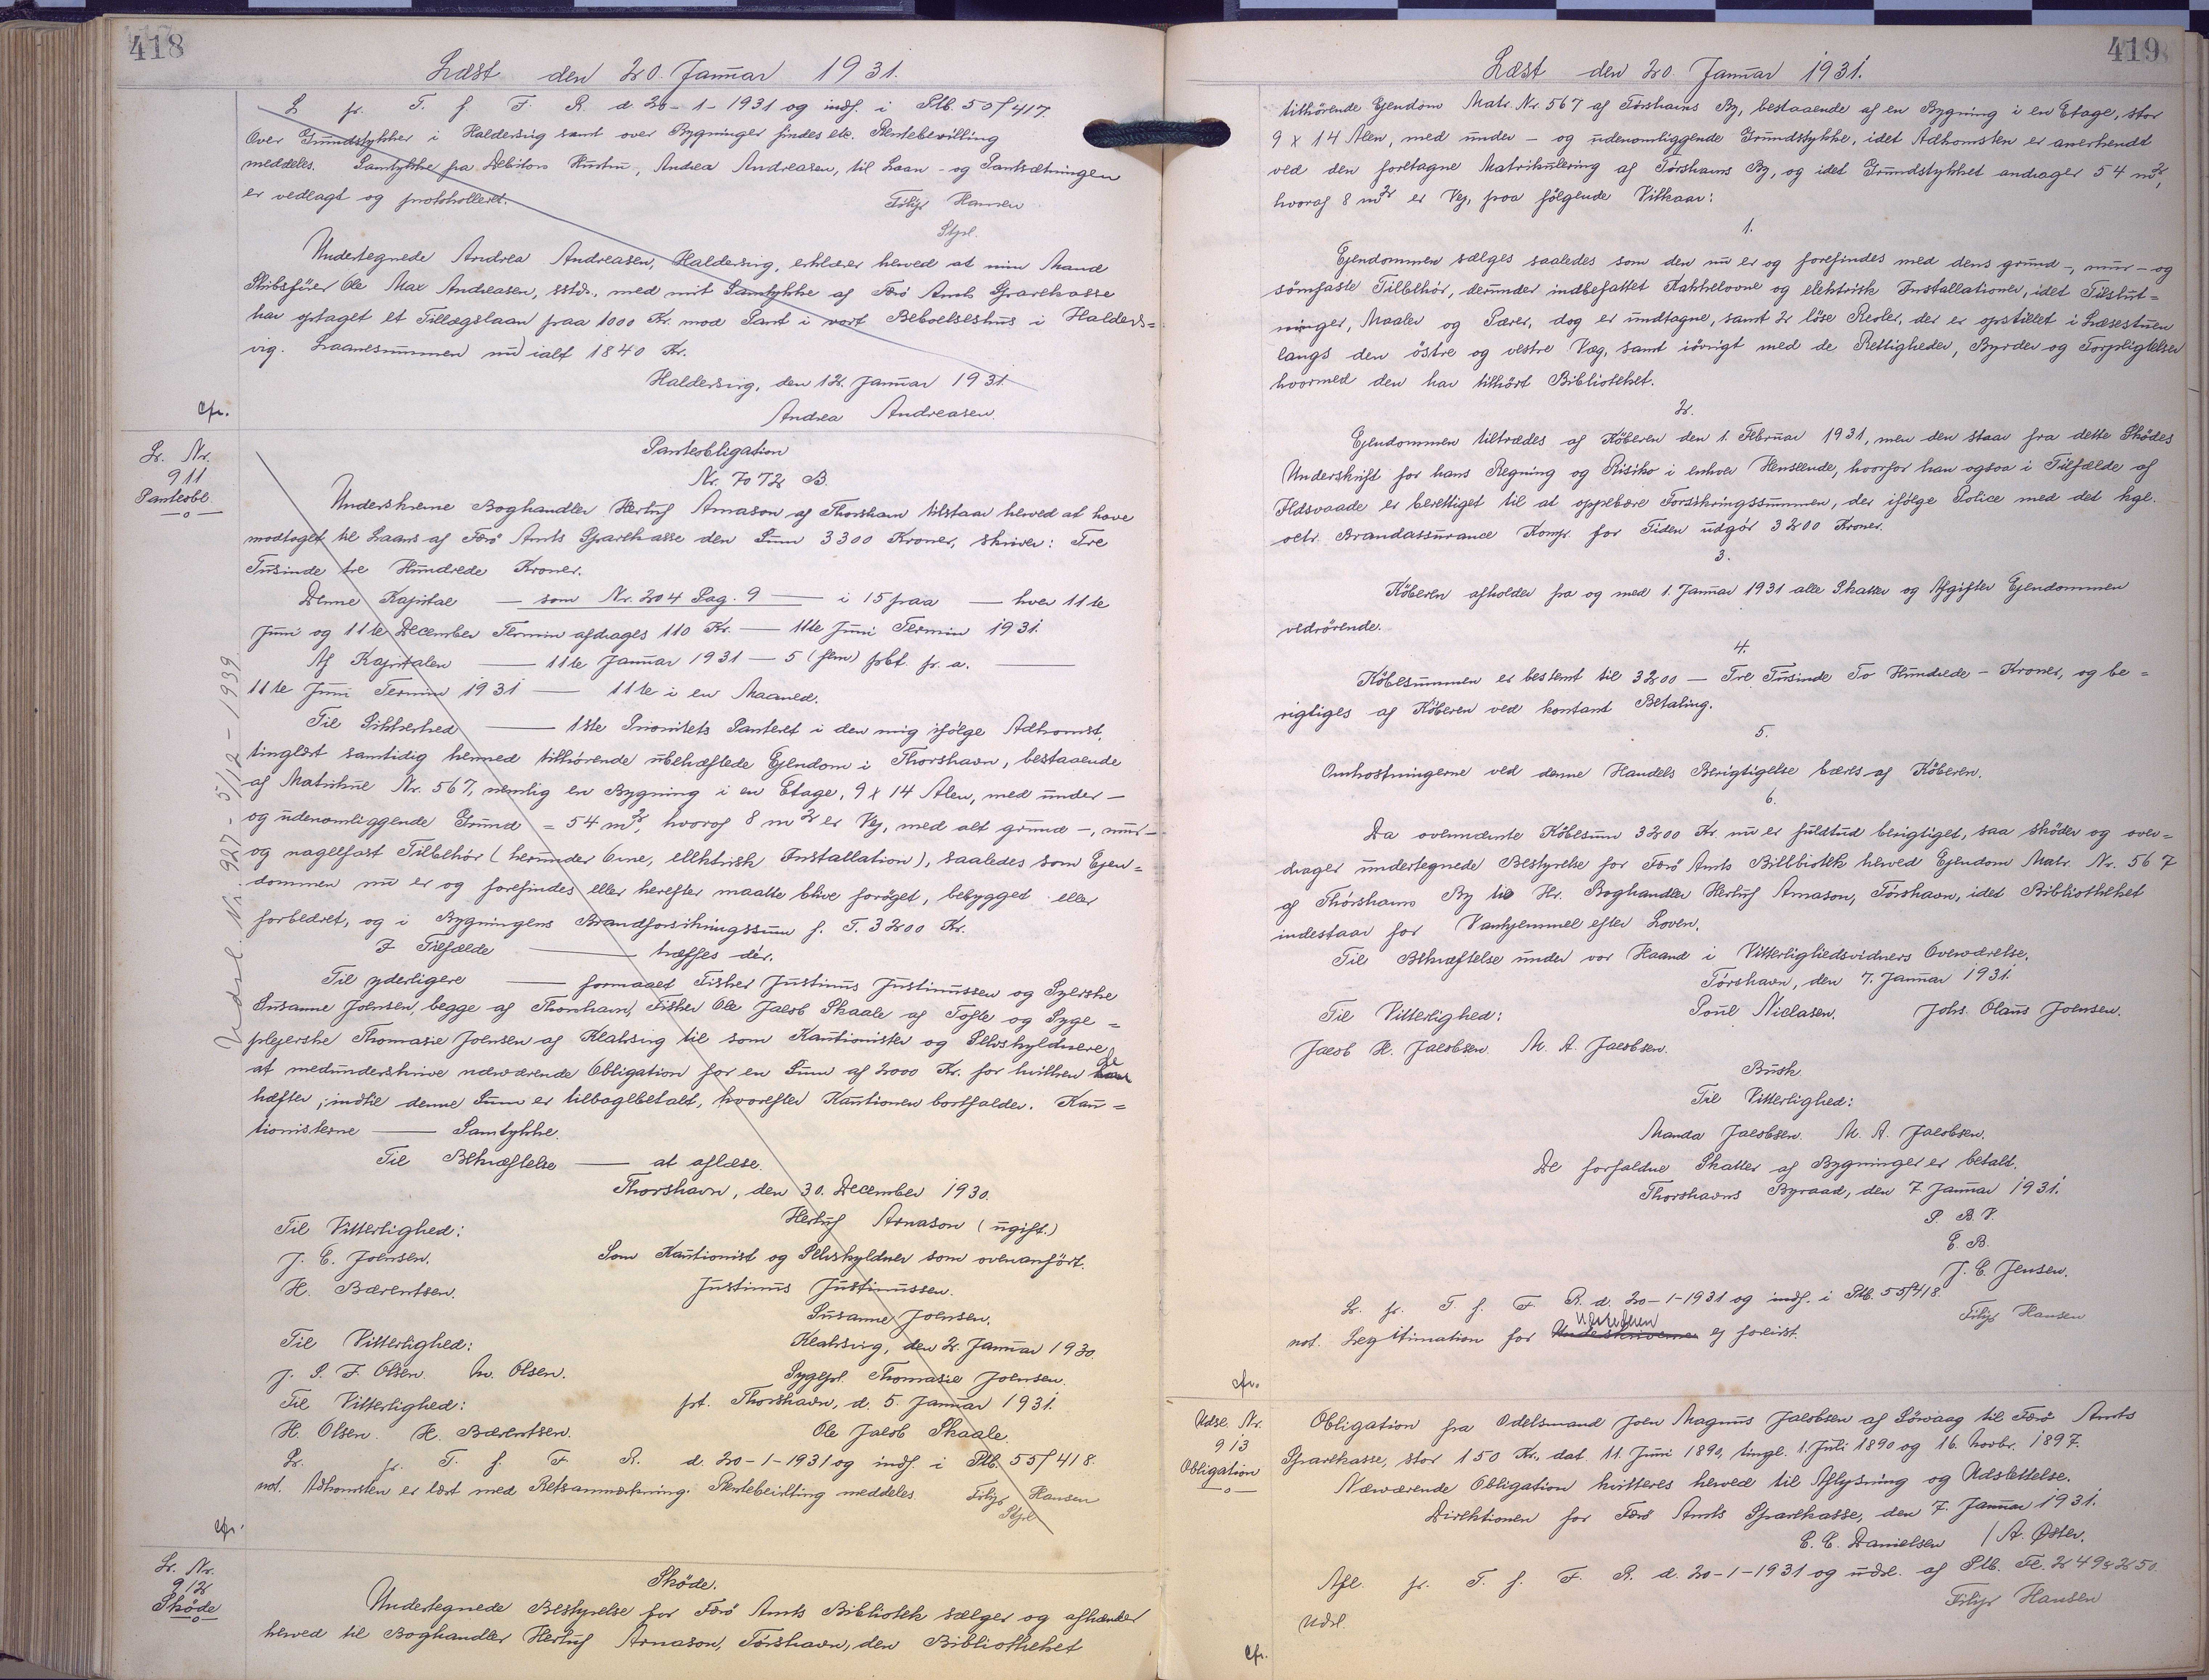 418
Læst den 20. Januar 1931.
L fr. T. f. F. R. d. 20-1-1931 og indf. i Ptb. 50f 417.
Over Grundstykker i Haldersvig samt over Bygninger findes etc. Rentebevilling
meddeles. Samtykke fra Debitors Hustru, Andrea Andreasen, til Laan- og Pantsætningen
er vedlagt og protokolleret.
Filip Hansen
Stpl.
Undertegnede Andrea Andreasen, Haldersvig, erklærer herved at min Mand
Skibsfører Ole Max Andreasen, sstds., med mit Samtykke af Færø Amts Sparekasse
har optaget et Tillægslaan paa 1000 Kr. mod Pant i vort Beboelseshus i Halders=
vig. Laanesummen nu ialt 1840 Kr.
Haldersvig, den 12. Januar 1931.
Andrea Andreasen
cfr.
Lr. Nr.
911
Panteobl.
Panteobligation
Nr. 7072 B.
Underskrevne Boghandler Herluf Arnason af Thorshavn tilstaar herved at have
modtaget til Laans af Færø Amts Sparekasse den Sum 3300 Kroner, skriver: Tre
Tusinde tre Hundrede Kroner.
Denne Kapital — som Nr. 204 Pag. 9 — i 15 paa — hver 11te
Juni og 11te December Termin afdrages 110 Kr. — 11te Juni Termin 1931.
Af Kapitalen — 11te Januar 1931 — 5 (fem) pCt. pr. a. —
11te Juni Termin 1931 — 11te i en Maaned.
Til Sikkerhed — 1ste Prioritets Panteret i den mig ifølge Adkomst,
tinglæst samtidig hermed tilhørende ubehæftede Ejendom i Thorshavn, bestaaende
af Matrikul Nr. 567, nemlig en Bygning i en Etage, 9 x 14 Alen, med under-
og udenomliggende Grund = 54 m2, hvoraf 8 m2 er Vej, med alt grund-, mur-
og nagelfast Tilbehör (herunder Ovne, ellektrisk Installation), saaledes som Ejen=
dommen nu er og forefindes eller herefter maatte blive foröget, bebygget eller
forbedret, og i Bygningens Brandforsikringssum f. T. 3200 Kr.
I Tilfælde — træffes dér.
Til yderligere — formaaet Fisker Justinus Justinussen og Syerske
Susanne Joensen, begge af Thorshavn, Fisker Ole Jacob Skaale af Tofte og Syge=
plejerske Thomasie Joensen af Klaksvig til som Kautionister og Selvskyldnere
at medunderskrive nærværende Obligation for en Sum af 2000 Kr. for hvilken de
hæfter, indtil denne Sum er tilbagebetalt, hvorefter Kautionen bortfalder. Kau=
tionisterne — Samtykke.
Til Bekræftelse — at aflæse.
Thorshavn, den 30. December 1930.
Herluf Arnason (ugift.)
Til Vitterlighed:
J. E. Joensen.
Som Kautionist og Selvskyldner som ovenanfört.
H. Bærentsen.
Justinus Justinussen.
Susanne Joensen.
Til Vitterlighed:
Klaksvig, den 2. Januar 1930.
J. P. F. Olsen. M. Olsen.
Sygepl. Thomasie Joensen.
Til Vitterlighed:
pt. Thorshavn, d. 5. Januar 1931.
H. Olsen. H. Bærentsen.
Ole Jacob Skaale.
Lr. fr. T. f. F. R. d. 20-1-1931 og indf. i Ptb. 55f 418.
not. Adkomsten er læst med Retsanmærkning. Rentebevilling meddeles. Filip Hansen
Stpl.
Udsl. Nr. 927 - 5/12 - 1939.
cfr.
Lr. Nr.
912
Sköde
Sköde.
Undertegnede Bestyrelse for Færö Amts Bibliotek sælger og afhænder
herved til Boghandler Herluf Arnason, Tórshavn, den Bibliotheket
419
Læst den 20. Januar 1931.
tilhörende Ejendom Matr. Nr. 567 af Tórshavns By, bestaaende af en Bygning i en Etage, stor
9 x 14 Alen, med under- og udenomliggende Grundstykke, idet Adkomsten er anerkendt
ved den foretagne Matrikulering af Tórshavns By, og idet Grundstykket andrager 54 m2,
hvoraf 8 m2 er Vej, paa fölgende Vilkaar:
1.
Ejendommen sælges saaledes som den nu er og forefindes med dens grund-, mur- og
sömfaste Tilbehör, derunder indbefattet Kakkelovne og elektrisk Installationer, idet Tilslut=
ninger, Maaler og Pærer, dog er undtagne, samt 2 löse Reoler, der er opstillet i Læsestuen
langs den östre og vestre Væg, samt iövrigt med de Rettigheder, Byrder og Forpligtelser
hvormed den har tilhört Bibliotheket.
2.
Ejendommen tiltrædes af Köberen den 1. Februar 1931, men den staar fra dette Sködes
Underskrift for hans Regning og Risiko i enhver Henseende, hvorfor han ogsaa i Tilfælde af
Ildsvaade er berettiget til at oppebære Forsikringssummen, der ifölge Police med det kgl.
octr. Brandassurance Komp. for Tiden udgör 3200 Kroner.
3.
Köberen afholder fra og med 1. Januar 1931 alle Skatter og Afgifter Ejendommen
vedrörende.
4.
Köbesummen er bestemt til 3200 — Tre Tusinde To Hundrede — Kroner, og be=
rigtiges af Köberen ved kontant Betaling.
5.
Omkostningerne ved denne Handels Berigtigelse bæres af Köberen.
6.
Da ovennævnte Köbesum 3200 Kr. nu er fuldtud berigtiget, saa sköder og over=
drager undertegnede Bestyrelse for Færö Amts Billbiotek herved Ejendom Matr. Nr. 567
af Thórshavns By til Hr. Boghandler Herluf Arnason, Tórshavn, idet Bibliotheket
indestaar for Vanhjemmel efter Loven.
Til Bekræftelse under vor Haand i Vitterlighedsvidners Overværelse.
Tórshavn, den 7. Januar 1931.
Til Vitterlighed:
Poul Niclasen. Johs. Olaus Joensen.
Jacob H. Jacobsen. M. A. Jacobsen.
Busk
Til Vitterlighed:
Manda Jacobsen. M. A. Jacobsen.
De forfaldne Skatter af Bygninger er betalt.
Thorshavns Byraad, den 7. Januar 1931.
P. B. V.
E. B.
J. C. Jensen.
Lr. fr. T. f. F. R. d. 20-1-1931 og indf. i Ptb. 55f418.
Filip Hansen
not. Legitimation for Udstederen ej forevist.
cfr.
Udsl. Nr.
913
Obligation
Obligation fra Odelsmand Joen Magnus Jacobsen af Sörvaag til Færö Amts
Sparekasse, stor 150 Kr., dat. 11. Juni 1890, tingl. 1. Juli 1890 og 16. Novbr. 1897.
Nærværende Obligation kvitteres herved til Aflysning og Udslettelse.
Direktionen for Færö Amts Sparekasse, den 7. Januar 1931.
C. C. Danielsen / A. Øster.
Afl. fr. T. f. F. R. d. 20-1-1931 og udsl. af Ptb. Fl. 249 & 250.
Filip Hansen
Udsl.
cfr.